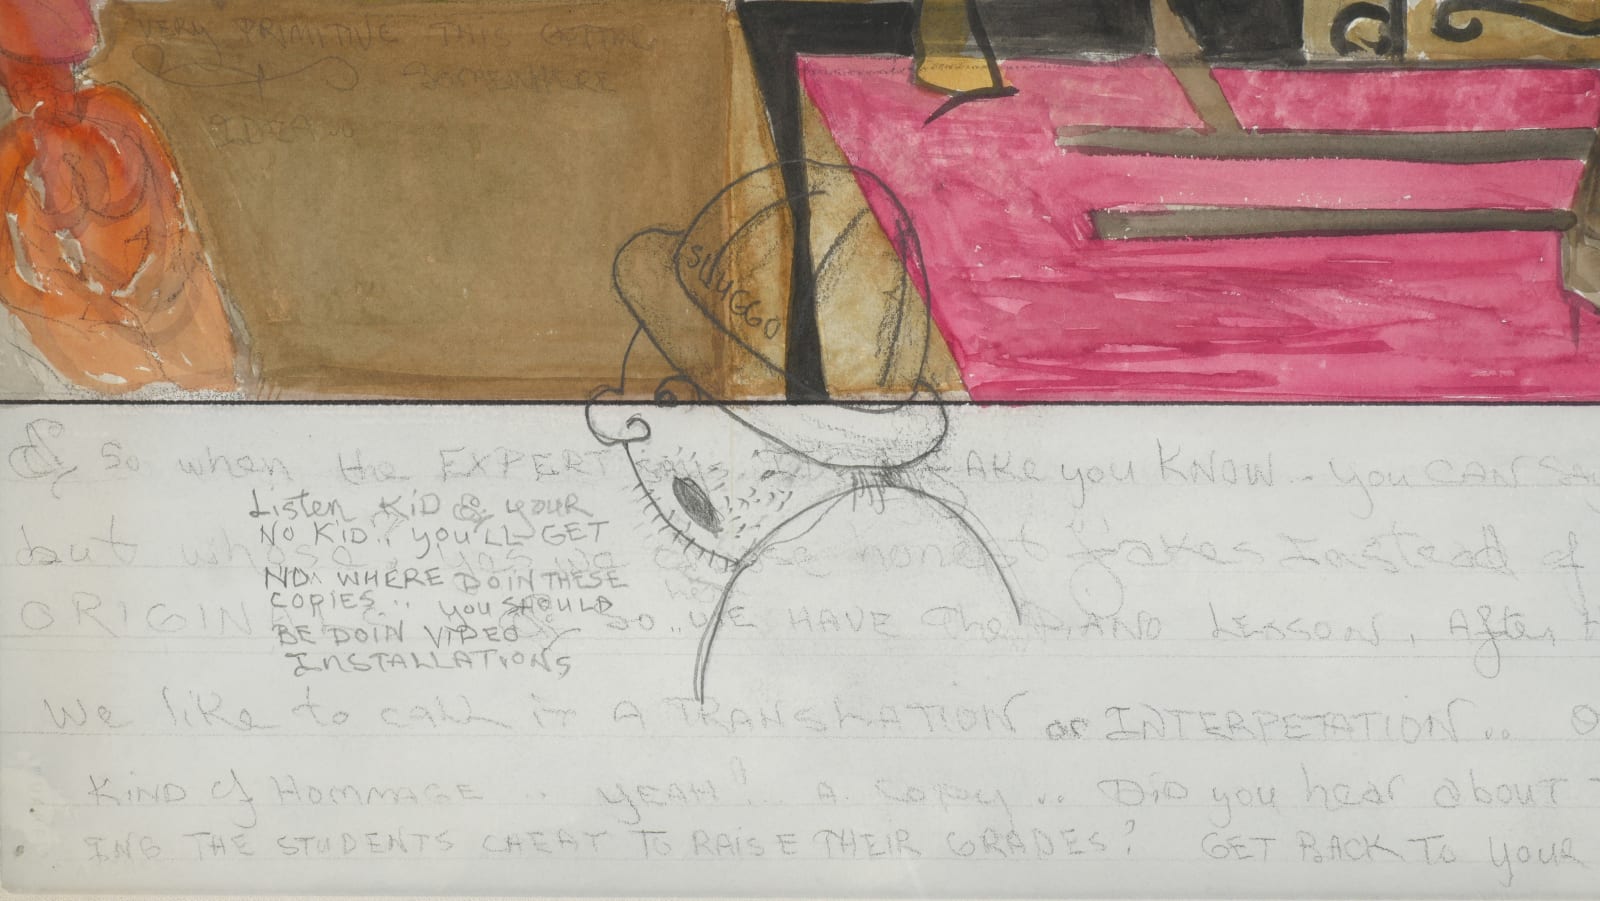 VERY PRIMITIVE THIS GETTING
SOMEWHERE
IDEA
SLUGGO
& So when the EXPERT says FAKE you KNOW.. you CAN say
Listen KID & your
NO KID.. YOU'LL GET
NO WHERE DOIN THESE
COPIES.. you SHOULD
BE DOIN VIDEO
INSTALLATIONS
but honest fakes Instead of
here
ORIGIN So.. WE HAVE The PIANO LESSON, After
We like to call it A TRANSLATION or INTERPETATION..
KIND of HOMMAGE .. YEAH! .. A Copy .. DID you hear about
ING THE STUDENTS CHEAT TO RAISE THEIR GRADES? GET BACK To Your